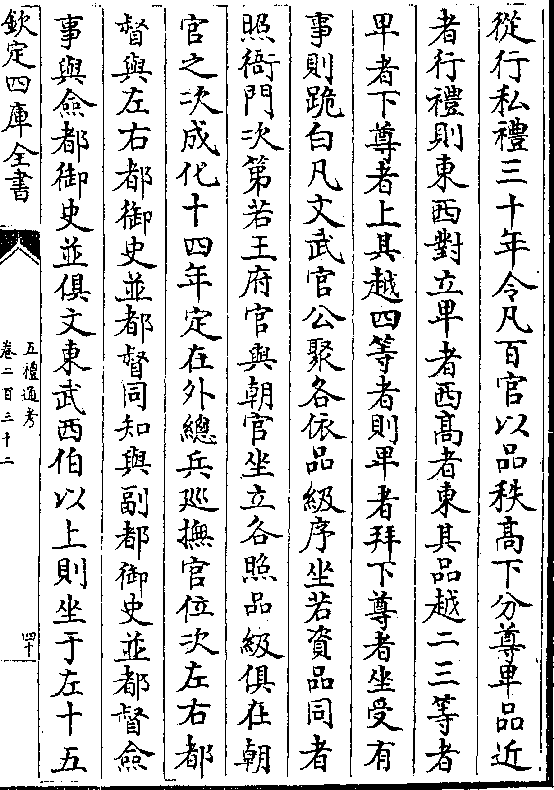 從行私禮三十年令凡百官以品秩高下分尊卑品近
者行禮則東西對立卑者西高者東其品越二三等者
卑者下尊者上其越四等者則卑者拜下尊者坐受有
事則跪白凡文武官公聚各依品級序坐若資品同者
照衙門次第若王府官與朝官坐立各照品級俱在朝
官之次成化十四年定在外總兵廵撫官位次左右都
督與左右都御史並都督同知與副都御史並都督僉
事與僉都御史並俱文東武西伯以上則坐于左十五
欽定四庫全書
五禮通考
卷二百三十二
四十